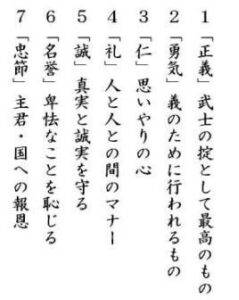 1「正義」武士の掟として最高のもの
2「勇気」義のために行われるもの
3「仁」思いやりの心
4「礼」人と人との間のマナー
5「誠」真実と誠実を守る
6「名誉」卑怯なことを恥じる
7「忠節」主君・国への報恩